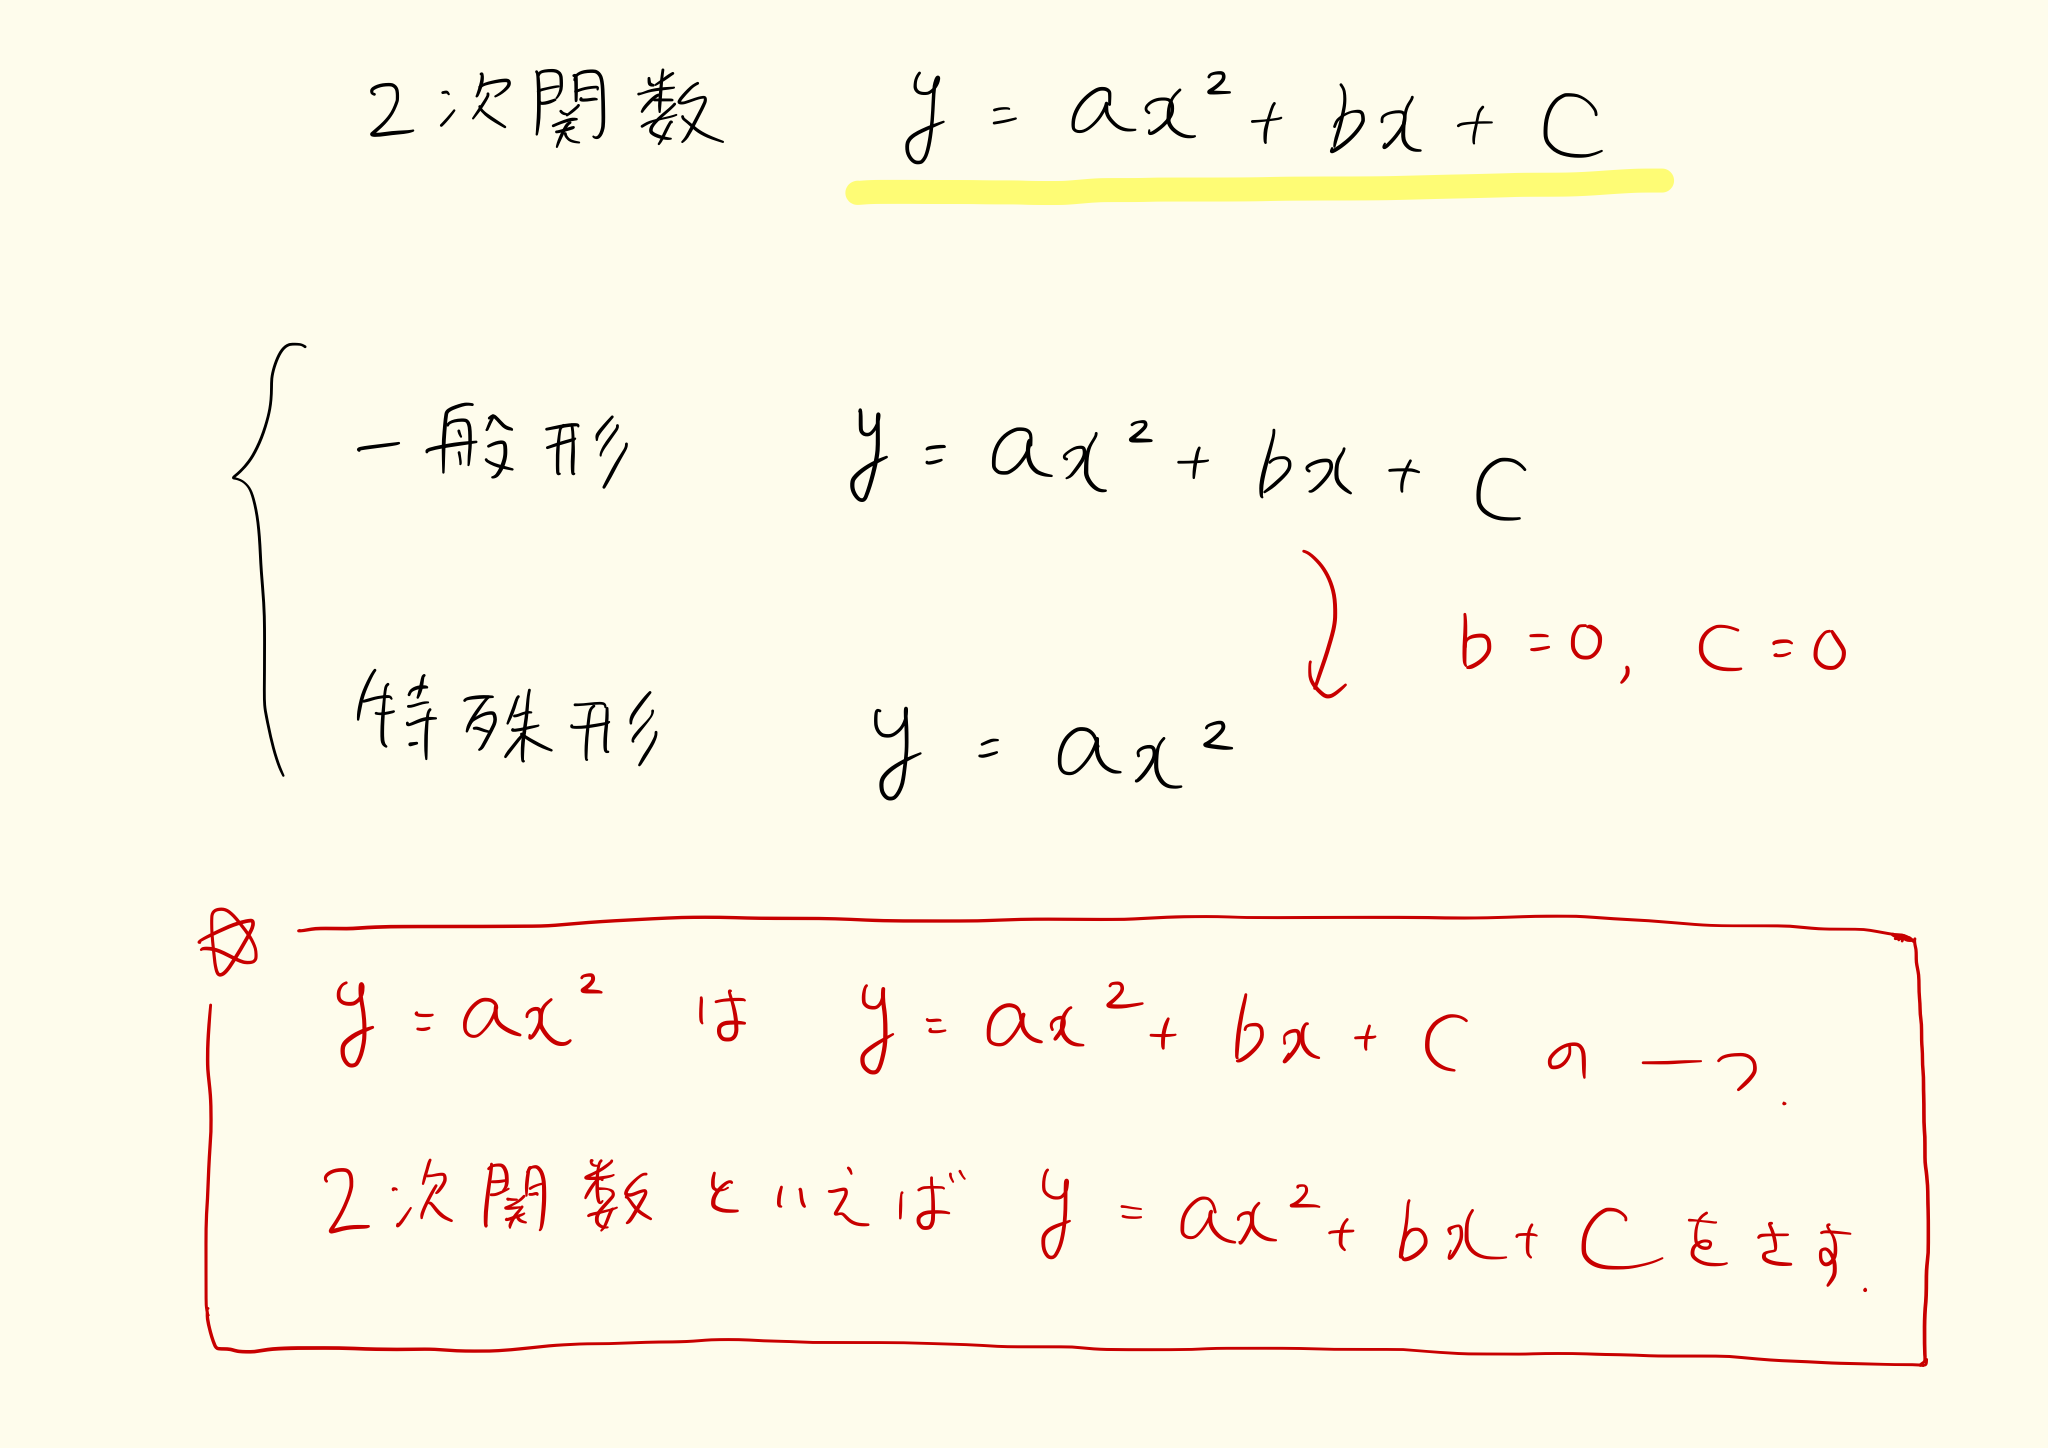 2次関数 y = ax² + bx + c
一般形 y = ax² + bx + c
b = 0, c = 0
特殊形 y = ax²
☆
y = ax² は y = ax² + bx + c の一つ.
2次関数といえば y = ax² + bx + c をさす.